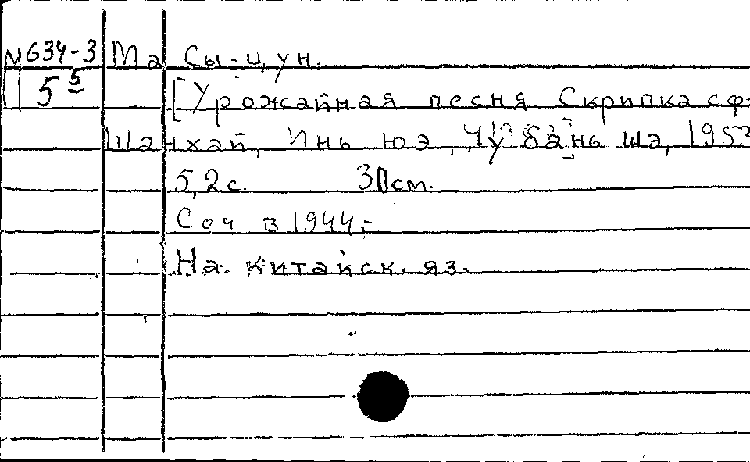 №634-3 Ма Сы-цун.
5 5 [Урожайная песня Скрипка с ф-
Шанхай, Инь юэ, Чу бань ша, 1953
5,2 с. 30 см.
Соч в 1944,-
На китайск. яз.